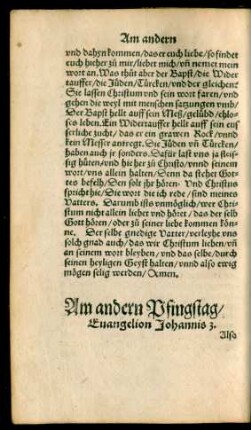 Am andern
vnd dahyn kommen/das er euch liebe/so findet
euch hieher zů mir/liebet mich/vñ nemet mein
wort an. Was thůt aber der Bapst/die Wider
tauffer/die Jüden/Türcken/vnd der gleichen?
Sie lassen Christum vnd sein wort faren/vnd
gehen die weyl mit menschen satzungen vmb/
Der Bapst helt auff sein Meß/gelübd/ehlo-
ses leben. Ein Widertauffer helt auff sein euf
serliche zucht/das er ein grawen Rock/vnnd
kein Messer antregt. Die Jüden vñ Türcken/
haben auch jr sonders. Dafür last vns ja fleis-
sig hüten/vnd hieher zů Christo/vnnd seinem
wort/vns allein halten/Denn da stehet Got-
tes befelh/Den solt jhr hören. Vnd Christus
spricht hie/Die wort die ich rede/sind meines
Vatters. Darumb ists vnmöglich/wer Chri
stum nicht allein liebet vnd höret/das der selb
Gott hören/oder zů seiner liebe kommen köñ-
ne. Der selbe gnedige Vatter/verleyhe vns
solch gnad auch/das wir Christum lieben/vñ
an seinem wort bleyben/vnd das selbe/durch
seinen heyligen Geyst halten/vnnd also ewig
mögen selig werden/Amen.
Am andern Pfingstag/
Euangelion Johannis 3.
Also